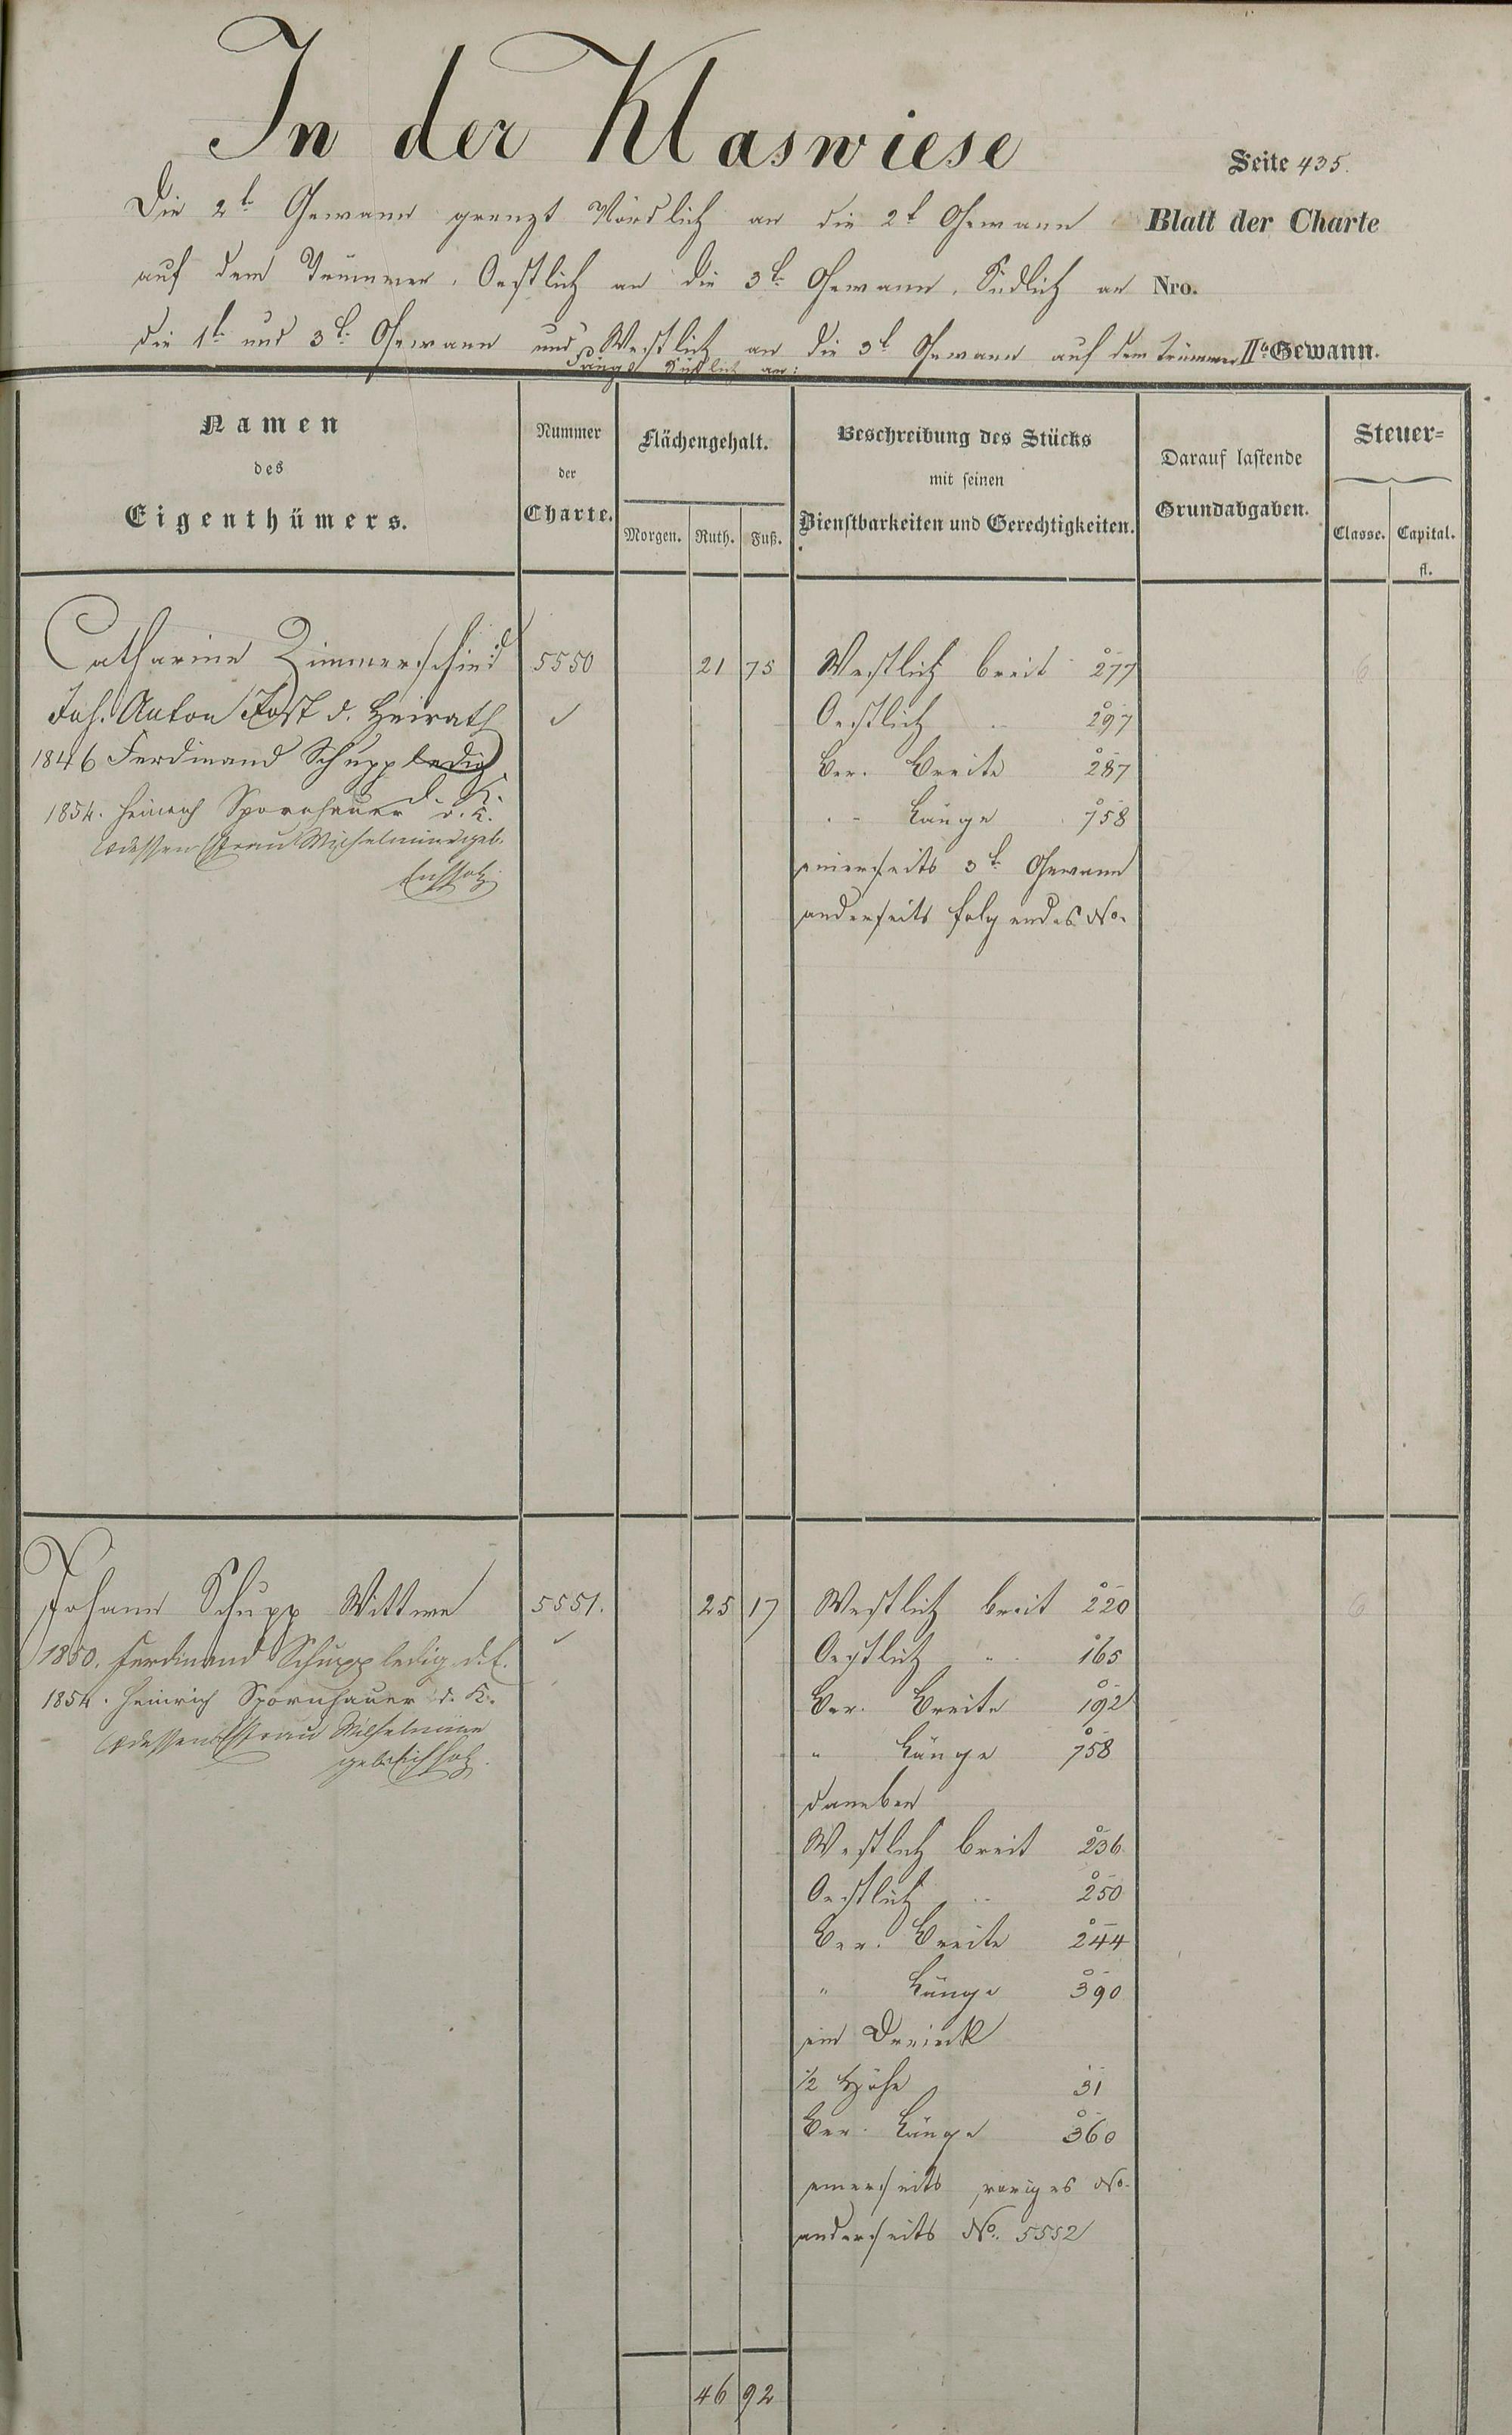 In der Klaswiese
Seite 435.
Die 2t. Gewann grenzt Nördlich an die 2t Gewann
Blatt der Charte
auf dem Trümmer, Oestlich an die 3t. Gewann, Südlich an
Nro.
die 1t. und 3t. Gewann und Westlich an die 3t Gewann auf dem Trümmer
IIte Gewann.
fängt Südlich an:
Namen
des
Eigenthümers.
Nummer
der
Charte.
Flächengehalt.
Morgen. Ruth. Fuß.
Beschreibung des Stücks
mit seinen
Dienstbarkeiten und Gerechtigkeiten.
Darauf lastende
Grundabgaben.
Steuer=
Classe. Capital.
fl.
Catharine Zimmerschied 5550 21 75 Westlich breit 277 6
Joh. Anton Jost d. Heirath Oestlich " 297
1846 Ferdinand Schupp ledig Ber. Breite 287
d. K.
1854. Heinrich Spornhauer d. K. " Länge 758
dessen Frau Wilhelmine geb.
Eichholz
einerseits 3t. Gewann
anderseits folgendes No.
Johann Schupp Wittwe 5551. 25 17 Westlich breit 220 6
1850. Ferdinand Schupp ledig d. E. Oestlich " 165
1854. Heinrich Spornhauer d. K. Ber. Breite 192
dessen Frau Wilhelmine
geb. Eichholz.
" Länge 758
daneben
Westlich breit 236
Oestlich " 250
Ber. Breite 244
" Länge 390
ein Dreieck
1/2 Höhe 31
Ber. Länge 360
einerseits voriges No.
anderseits No. 5552
46 92